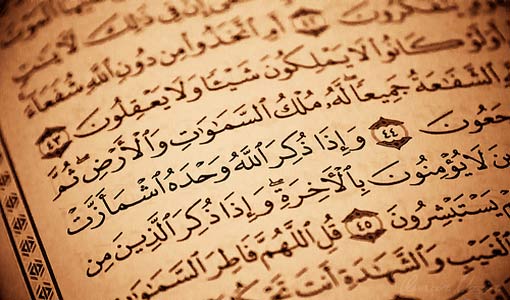 إِنَّ فِى ذَٰلِكَ لَأٓيَٰتٍ
يَتَفَكَّرُونَ ٤٢ أَمِ ٱتَّخَذُوا۟ مِن دُونِ ٱللَّهِ شُفَعَآءَ
أَوَلَوْ كَانُوا۟ لَا يَمْلِكُونَ شَيْـًٔا وَلَا يَعْقِلُونَ ٤٣
ٱلشَّفَٰعَةُ جَمِيعًا لَّهُۥ مُلْكُ ٱلسَّمَٰوَٰتِ وَٱلْأَرْضِ ثُمَّ
جَعُونَ ٤٤ وَإِذَا ذُكِرَ ٱللَّهُ وَحْدَهُ ٱشْمَأَزَّتْ
ينَ لَا يُؤْمِنُونَ بِٱلْأَخِرَةِ وَإِذَا ذُكِرَ ٱلَّذِينَ مِن
مْ يَسْتَبْشِرُونَ ٤٥ قُلِ ٱللَّهُمَّ فَاطِرَ ٱلسَّمَٰوَٰ
ٱلْغَيْبِ وَٱلشَّهَٰدَةِ أَنتَ